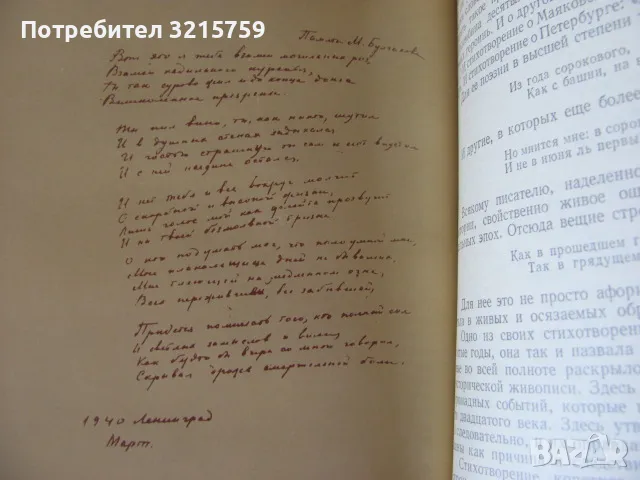 Потребител 3215759
Памяти М. Булгакова
Вот это я тебе, взамен могильных роз,
Взамен кадильного куренья;
Ты так сурово жил и до конца донес
Великолепное презренье.
Ты пил вино, ты, как никто, шутил
И в душных стенах задыхался,
И гостью страшную ты сам к себе впустил
И с ней наедине остался.
И нет тебя и все вокруг молчит
О скорбной и высокой жизни,
Лишь голос мой как флейта прозвучит
И на твоей безмолвной тризне
О кто подумать мог, что полоумной мне,
Мне плакальщице дней не бывших,
Мне тлеющей на медленном огне,
Всех пережившей, все забывшей,
Придется поминать того, кто полный сил
И светлых замыслов и воли,
Как будто бы вчера со мной говорил,
Скрывая дрожь смертельной боли.
1940 Ленинград
Март.
десять
О стихотворение о Маяковс
стихотворение о Петербурге:
ее поэзии в высшей степени
Из года сорокового,
Как с башни, на в
И другие, в которых еще более
Но мнится мне: в соро
И не в июля ль первы
писателю, наделенно
свойственно живое ощ
эпох. Отсюда вещие стр
Как в прошедшем г
Так в грядущем
Для нее это не просто афори
в живых и осязаемых обр
Одно из своих стихотворен
годы, она так и назвала
во всей полноте раскрыло
живописи. Здесь
событий, которые
двадцатого века. Здесь утв
как причин
Стихотворение
BAZAR
bg